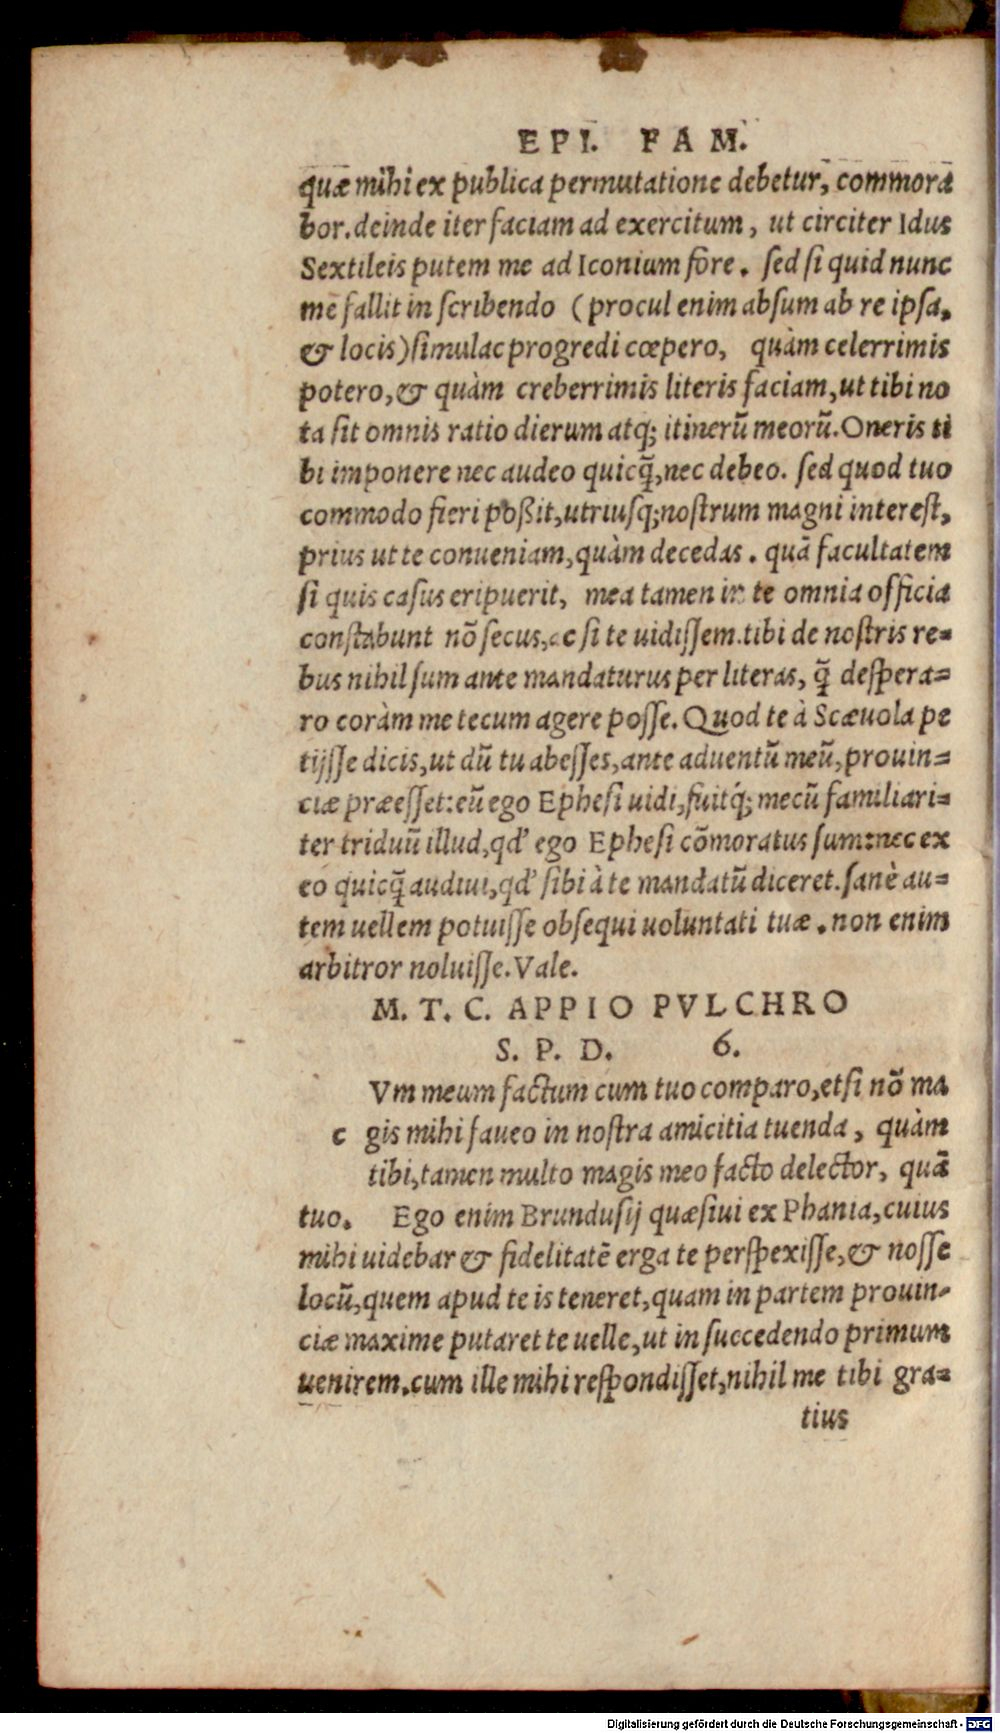 EPI. FAM.
quæ mihi ex publica permutatione debetur, commora
bor. deinde iter faciam ad exercitum, ut circiter Idus
Sextileis putem me ad Iconium fore. sed si quid nunc
me fallit in scribendo (procul enim absum ab re ipsa,
& locis) simulac progredi cœpero, quàm celerrimis
potero, & quàm creberrimis literis faciam, ut tibi no
ta sit omnis ratio dierum atq; itinerũ meorũ. Oneris ti
bi imponere nec audeo quicq̃, nec debeo. sed quod tuo
commodo fieri poßit, utriusq; nostrum magni interest,
prius ut te conueniam, quàm decedas. quã facultatem
si quis casus eripuerit, mea tamen in te omnia officia
constabunt nõ secus, ac si te uidissem. tibi de nostris re=
bus nihil sum ante mandaturus per literas, q̃ despera=
ro coràm me tecum agere posse. Quod te à Scæuola pe
tijsse dicis, ut dũ tu abesses, ante aduentũ meũ, prouin=
ciæ præesset: eũ ego Ephesi uidi, fuitq́; mecũ familiari=
ter triduũ illud, qd' ego Ephesi cõmoratus sum: nec ex
eo quicq̃ audiui, qd' sibi à te mandatũ diceret. sanè au=
tem uellem potuisse obsequi uoluntati tuæ. non enim
arbitror noluisse. Vale.
M. T. C. APPIO PVLCHRO
S. P. D. 6.
Vm meum factum cum tuo comparo, etsi nõ ma
c gis mihi faueo in nostra amicitia tuenda, quàm
tibi, tamen multo magis meo facto delector, quã
tuo. Ego enim Brundusij quæsiui ex Phania, cuius
mihi uidebar & fidelitatẽ erga te perspexisse, & nosse
locũ, quem apud te is teneret, quam in partem prouin-
ciæ maxime putaret te uelle, ut in succedendo primum
uenirem. cum ille mihi respondisset, nihil me tibi gra=
tius
Digitalisierung gefördert durch die Deutsche Forschungsgemeinschaft - DFG